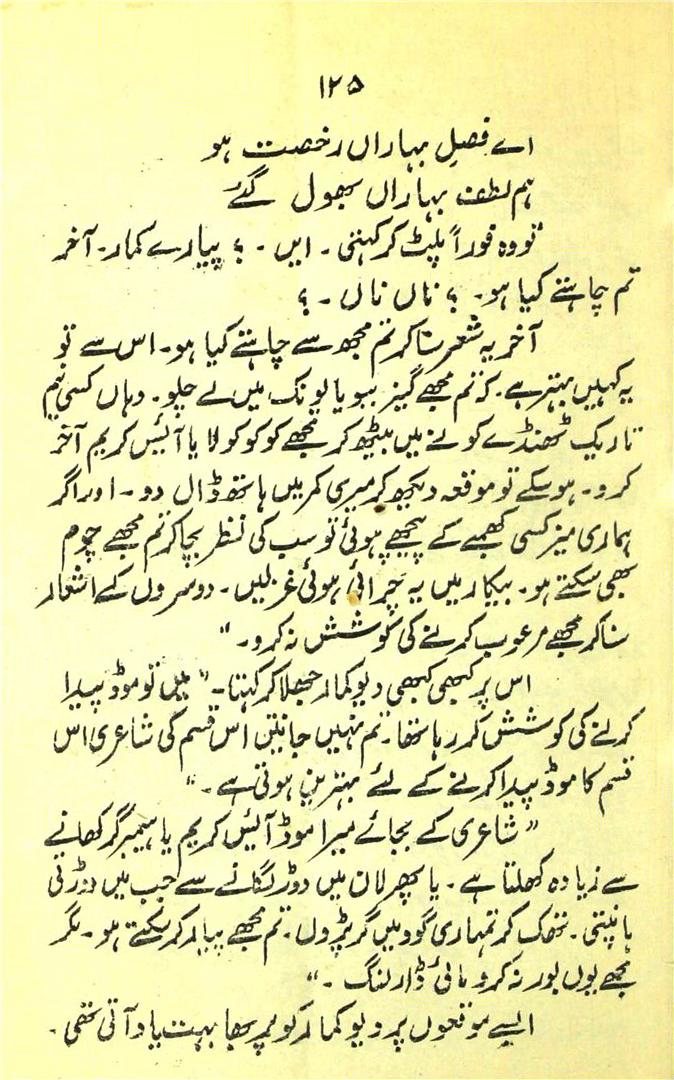 ۱۲۵
اے فصلِ بہاراں رخصت ہو
ہم لطف بہاراں بھول گئے
تو وہ فوراً پلٹ کر کہتی ۔ ایں ۔ ؟ پیارے کمار۔ آخر
تم چاہتے کیا ہو۔ ؟ ناں ناں ۔ ؟
آخر یہ شعر سنا کر تم مجھ سے چاہتے کیا ہو۔ اس سے تو
یہ کہیں بہتر ہے۔ کہ تم مجھے گیز ببو یا لونک میں لے چلو۔ وہاں کسی نیم
تاریک ٹھنڈے کونے میں بیٹھ کر مجھے کوکوکولا یا آئیس کریم آفر
کرو۔ ہو سکے تو موقعہ دیکھ کر میری کمر میں ہاتھ ڈال دو ۔ اور اگر
ہماری میز کسی کھمبے کے پیچھے ہوئی تو سب کی نظر بچا کر تم مجھے چوم
بھی سکتے ہو۔ بیکار میں یہ چرائی ہوئی غزلیں۔ دوسروں کے اشعار
سنا کر مجھے مرعوب کرنے کی کوشش نہ کرو۔ "
اس پر کبھی کبھی دیو کمار جھلا کر کہتا۔ " میں تو موڈ پیدا
کرنے کی کوشش کر رہا تھا۔ تم نہیں جانتیں اس قسم کی شاعری اس
قسم کا موڈ پیدا کرنے کے لئے بہترین ہوتی ہے۔ "
" شاعری کے بجائے میرا موڈ آئیس کریم یا ہیمبرگر کھانے
سے زیادہ کھلتا ہے۔ یا پھر لان میں دوڑ لگانے سے جب میں دوڑتی
ہانپتی۔ تھک کر تمہاری گود میں گر پڑوں۔ تم مجھے پیار کر سکتے ہو۔ مگر
مجھے یوں بور نہ کرو مائی ڈارلنگ ۔ "
ایسے موقعوں پر دیو کمار کو پربھا بہت یاد آتی تھی۔